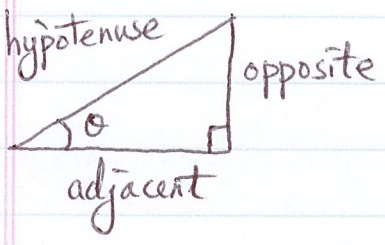 hypotenuse
opposite
θ
adjacent